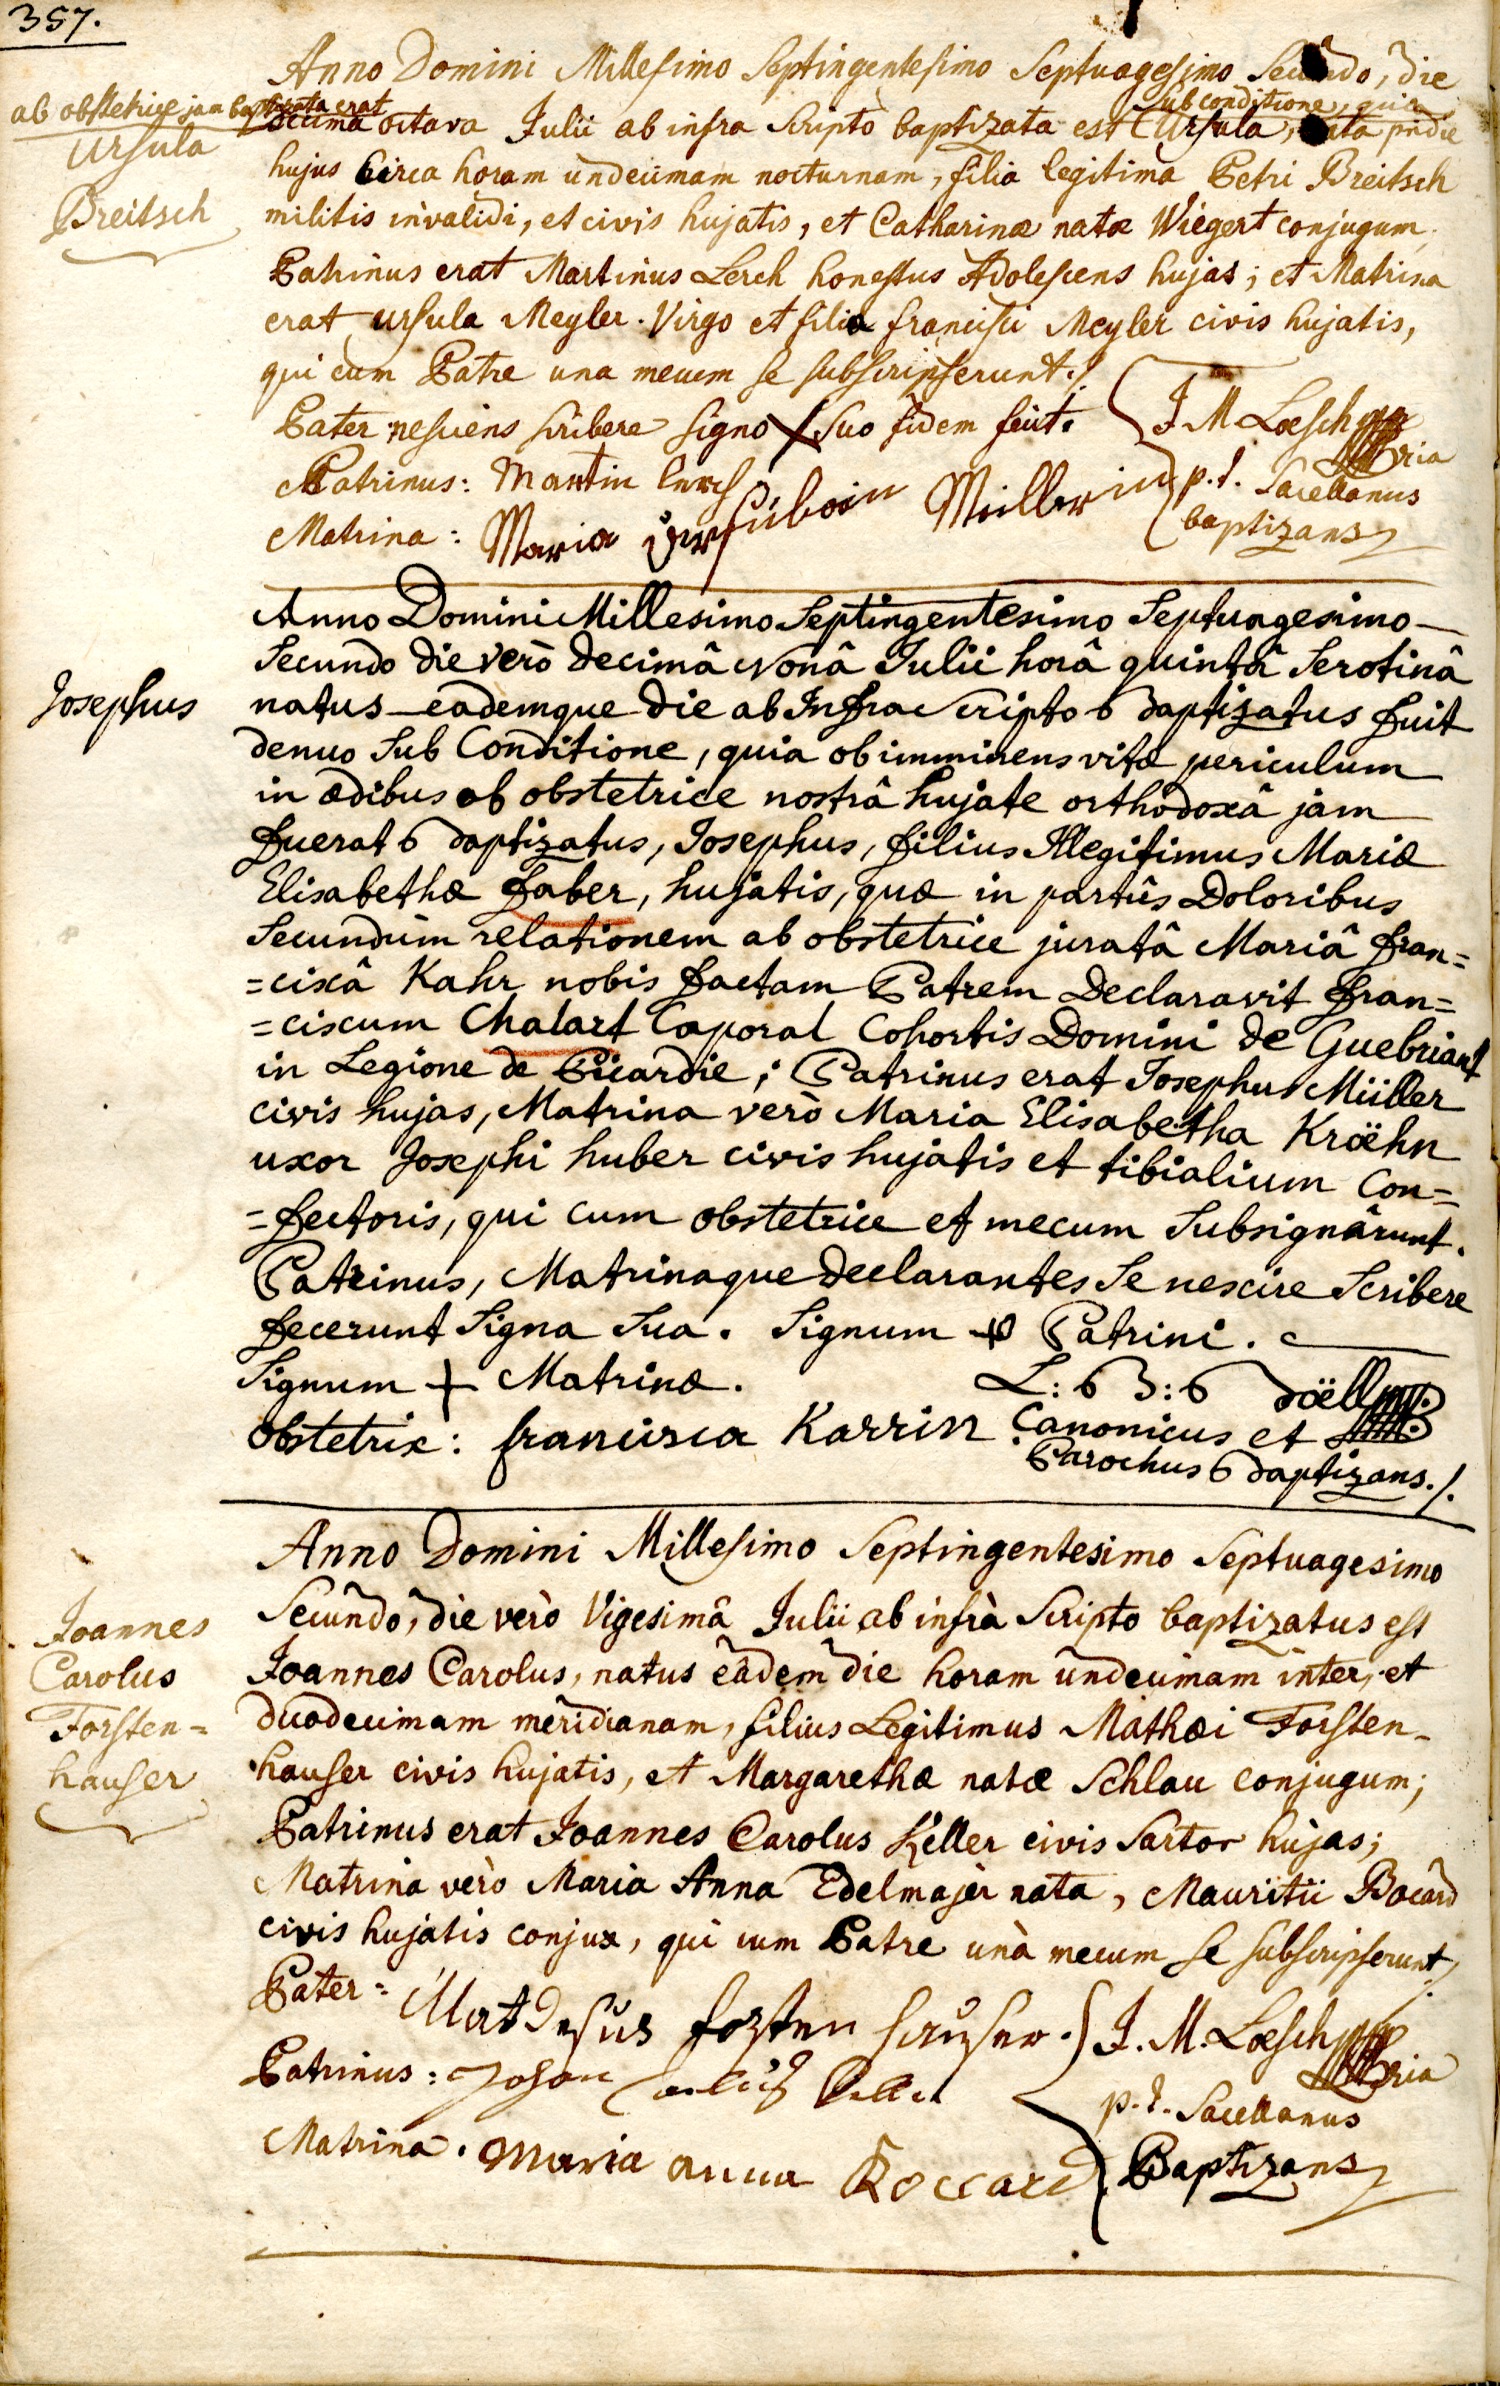 357.
Anno Domini Millesimo Septingentesimo Septuagesimo Secundo, die
sub conditione, quia
ab obstetrice jam baptizata erat
decima octava Julii ab infra scripto baptizata est Ursula, nata pridie
Ursula
Breitsch
hujus circa horam undecimam nocturnam, filia legitima Petri Breitsch
militis invalidi, et civis hujatis, et Catharinæ natæ Wiegert conjugum.
Patrinus erat Martinus Lerch honestus Adolescens hujas; et Matrina
erat Ursula Meyler Virgo et filia francisci Meyler civis hujatis,
qui cum Patre una mecum se subscripserunt ./.
Pater nesciens scribere signo X suo fidem fecit.
Patrinus: Martin Lerch
Matrina: Maria Müllerin
J M Loesch mpp
ria
p. t. Sacellanus
baptizans
Josephus
Anno Domini Millesimo Septingentesimo Septuagesimo
Secundo die verò decimâ nonâ Julii horâ quintâ Serotinâ
natus eademque die ab Infra Scripto baptizatus fuit
denuo Sub Conditione, quia ob imminens vitæ periculum
in ædibus ab obstetrice nostrâ hujate orthodoxâ jam
fuerat baptizatus, Josephus, filius Illegitimus Mariæ
Elisabethæ faber, hujatis, quæ in partûs Doloribus
Secundùm relationem ab obstetrice juratâ Mariâ fran=
=ciscâ Kahr nobis factam Patrem Declaravit fran=
=ciscum Chalart Caporal Cohortis Domini de Guebriant
in Legione de Picardie; Patrinus erat Josephus Müller
civis hujas, Matrina verò Maria Elisabetha Kröehn
uxor Josephi huber civis hujatis et tibialium Con=
=fectoris, qui cum obstetrice et mecum Subsignârunt.
Patrinus, Matrinaque declarantes Se nescire Scribere
fecerunt Signa Sua. Signum + Patrini.
Signum + Matrinæ.
obstetrix: francisca Karrin
Canonicus et
Parochus baptizans ./.
Joannes
Carolus
Forsten=
hauser
Anno Domini Millesimo Septingentesimo Septuagesimo
Secundo, die verò Vigesimâ Julii ab infrà Scripto baptizatus est
Joannes Carolus, natus eâdem die horam undecimam inter, et
duodecimam meridianam, filius Legitimus Mathæi Forsten-
hauser civis hujatis, et Margarethæ natæ Schlau conjugum;
Patrinus erat Joannes Carolus Keller civis Sartor hujas;
Matrina verò Maria Anna Edelmajer nata, Mauritii Bocard
civis hujatis conjux, qui cum Patre unà mecum se subscripserunt ./.
Pater= Mathesus forsten hauser.
Patrinus: Johan Carlus Keller
Matrina. Maria anna Boccard
J. M. Loesch mpp
ria
p. t. Sacellanus
Baptizans